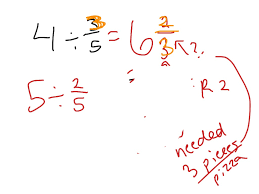 4 ÷ 3/5 = 6 2/3 ?
5 ÷ 2/5 =
R 2
needed
3 pieces
pizza